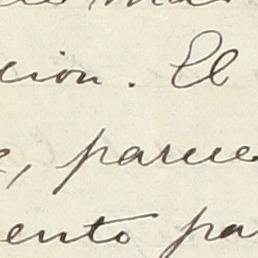 cion. El
, parece
ento pa